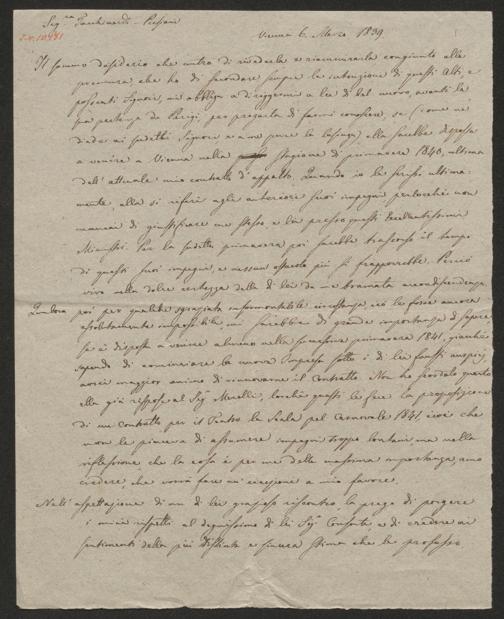 Sig.ra Tacchinardi-Persiani
I.N. 10481
Vienna 6. Marzo 1839
Il sommo desiderio che nutro di rivederla e riascoltarla congiunto alla
premura che ho di secondare sempre le intenzioni di questi Alti, e
possenti Signori, mi obbliga a dirigermi a Lei di bel nuovo, avanti la
sua partenza da Parigi, per pregarla di farmi conoscere, se (come ne
diede ai suddetti Signori e a me pure la lusinga) ella sarebbe disposta
a venire a Vienna nella stagione di primavera 1840, ultima
dell'attuale mio contratto d'appalto. Quando io le scrissi ultima-
mente, ella si riferì agli anteriori suoi impegni perlocchè non
mancai di giustificare me stesso e lei presso questi Eccellentissimi
Ministri. Per la suddetta primavera poi sarebbe trascorso il tempo
di questi suoi impegni, e nessun ostacolo più si frapporrebbe. Perciò
vivo nella dolce certezza della di lei da me bramata accondiscendenza.
Qualora poi per qualche sgraziata insormontabile circostanza ciò le fosse ancora
assolutamente impossibile, mi sarebbe di grande importanza il sapere
se è disposta a venire almeno nella susseguente primavera 1841, giacchè
sapendo di cominciare la nuova Impresa sotto i di lei fausti auspicj,
avrei maggior animo di rinnovarne il Contratto. Non ho scordato quanto
ella già rispose al Sig.r Merelli, locchè questi le fece la proposizione
di un contratto per il Teatro la Scala pel Carnovale 1841, cioè che
non le piaceva di assumere impegni troppo lontani, ma nella
riflessione che la cosa è per me della massima importanza, amo
credere che vorrà fare un'eccezione a mio favore.
Nell'aspettazione di un di lei grazioso riscontro, la prego di porgere
i miei rispetti al degnissimo di lei Sig.r Consorte, e di credere ai
sentimenti della più distinta e sincera stima che le professo